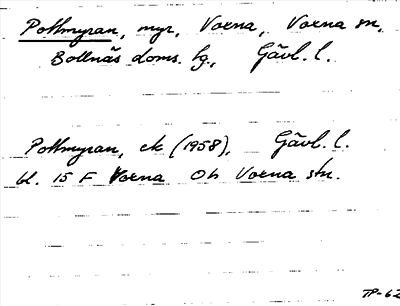 Pottmyran, myr, Voxna, Voxna sn,
Bollnäs doms. lg., Gävl. l.
Pottmyran, ek (1958), Gävl. l.
bl. 15 F Voxna Ob Voxna sn.
TP-62